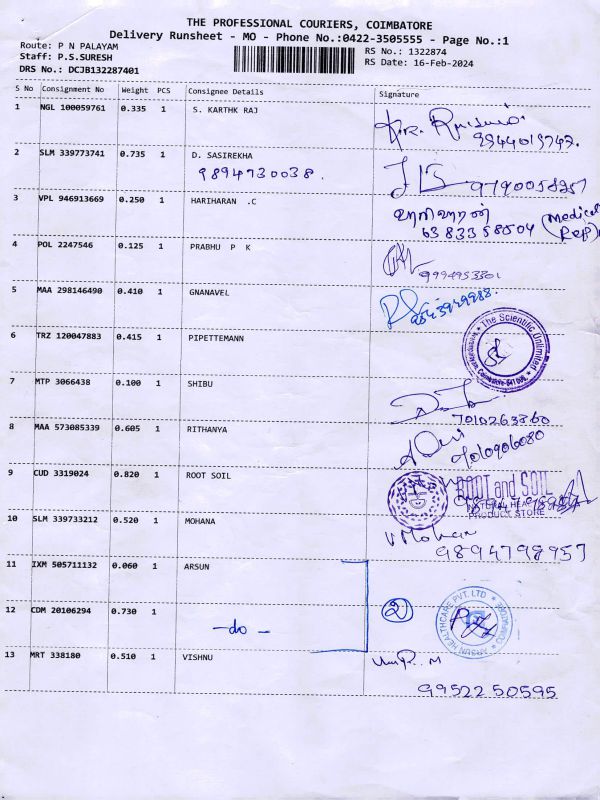 THE PROFESSIONAL COURIERS, COIMBATORE
Delivery Runsheet - MO - Phone No.:0422-3505555 - Page No.:1
Route: P N PALAYAM
Staff: P.S.SURESH
DRS No.: DCJB132287401
RS No.: 1322874
RS Date: 16-Feb-2024
S No Consignment No Weight PCS Consignee Details Signature
1 NGL 100059761 0.335 1 S. KARTHK RAJ
9944019747.
2 SLM 339773741 0.735 1 D. SASIREKHA
9894730038.
9790058257
3 VPL 946913669 0.250 1 HARIHARAN .C ஹரிஹரன்
6383358504 (Medical Rep)
4 POL 2247546 0.125 1 PRABHU P K
9994953301
5 MAA 298146490 0.410 1 GNANAVEL
6 TRZ 120047883 0.415 1 PIPETTEMANN
The Scientific Unlimited
7 MTP 3066438 0.100 1 SHIBU
7010263360
8 MAA 573085339 0.605 1 RITHANYA
9010906080
9 CUD 3319024 0.820 1 ROOT SOIL
ROOT and SOIL
PRODUCT STORE
10 SLM 339733212 0.520 1 MOHANA V Mohan
9894798957
11 IXM 505711132 0.060 1 ARSUN
12 CDM 20106294 0.730 1 -do- 2
ARSUN HEALTHCARE PVT. LTD
13 MRT 338180 0.510 1 VISHNU
9952250595